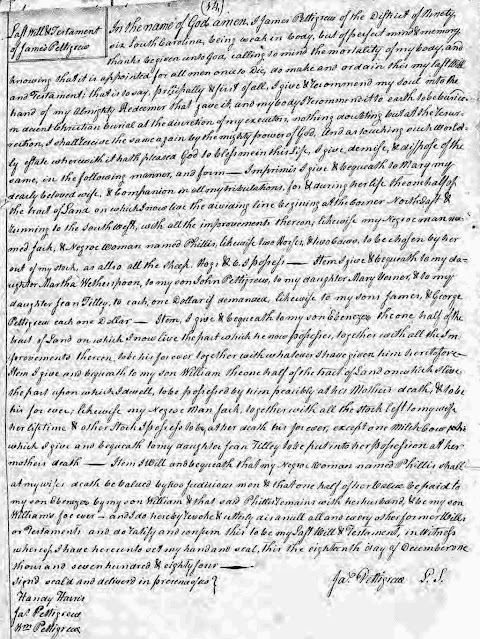 (14)
Last Will & Testament
of James Pettigrew
In the name of God amen. I James Pettigrew of the District of Ninety,
six South Carolina, being weak in body, but of perfect mind & memory,
thanks be given unto God, calling to mind the mortality of my body, and
knowing that it is appointed for all men once to Die, do make and ordain this my last Will
and Testament; that is to say, principally & first of all, I give & recommend my soul into the
hand of my Almighty Redeemer that gave it, and my body I recommend to earth to be buried
in decent Christian burial at the discretion of my executors, nothing doubting but at the resur-
rection, I shall receive the same again by the mighty power of God. And as touching such World-
ly estate wherewith it hath pleased God to bless me in this Life, I give demise, & dispose of the
same, in the following manner, and form — Imprimis I give & bequeath to Mary my
dearly beloved wife, & Companion in all my tribulations, for & during her life the one half of
the tract of Land on which I now live the dividing line beginning at the Corner North East &
running to the South West, with all the improvements thereon; likewise my Negroe man na-
med Jack, & Negroe Woman named Phillis, likewise two Horses, & two Cows, to be chosen by her
out of my stock, as also all the Sheep, Hogs & C. I possess — Item I give & bequeath to my da-
ughter Martha Wetherspoon, to my son John Pettigrew, to my daughter Mary Verner, & to my
daughter Jean Tilley, to each, one Dollar if demanded, likewise to my sons James, & George
Pettigrew each one Dollar — Item, I give & bequeath to my son Ebenezer the one half of the
tract of Land on which I now live the part which he now possesses, together with all the Im
provements thereon, to be his for ever together with whatever I have given him heretofore —
Item I give and bequeath to my son William the one half of the tract of Land on which I live
the part upon which I dwell, to be possessed by him peacibly at his Mothers death, & to be
his for ever, likewise my Negroe Man Jack, together with all the Stock left to my wife
her life time & other Stock I possess to be, at her death his for ever, except one Milch Cow
which I give and bequeath to my daughter Jean Tilley to be put into her possession at her
mothers death — Item I Will and bequeath that my Negroe Woman named Phillis shall
at my wifes death be valued by two judicious men & that one half of her Value be paid to
my son Ebenezer by my son William & that said Phillis remains with her husband, & be my son
Williams for ever — and I do hereby revoke & utterly disannull all and every other former Wills
or Testaments and do ratify and confirm this to be my Last Will & Testament, in Witness
whereof I have hereunto set my hand and seal, this the eighteenth day of December one
thousand seven hundred & eighty four —
Signd seald and deliverd in presence of }
Jas. Pettigrew L. S.
Handy Harris
Jas. Pettigrew
Wm. Pettigrew